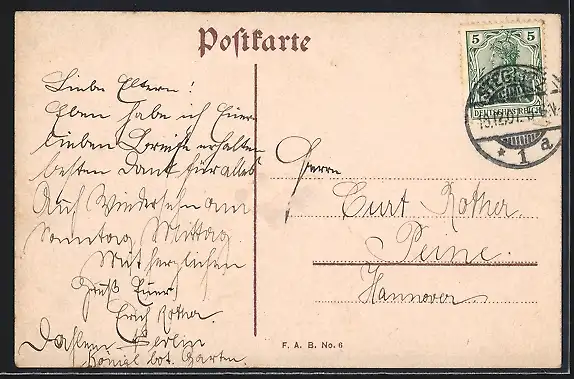 Postkarte
5 5
DEUTSCHES REICH
STEGLITZ
* 1 a
Liebe Eltern!
Eben habe ich Euren
lieben Brief erhalten
besten Dank für alles
Auf Wiedersehn am
Sonntag Mittag.
Mit herzlichen
Gruß Euer
Erich Rother.
Dahlem Berlin
Königl bot. Garten.
Herrn
Curt Rother.
Peine.
Hannover
F. A. B. No. 6